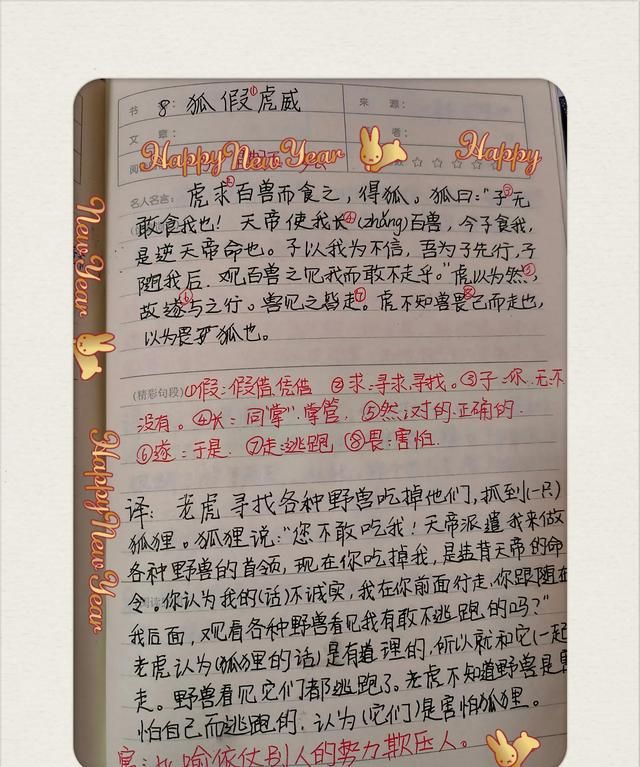 书 8: 狐假①虎威 来 源:
文 章: 者:
阅 ☆☆☆☆☆
HappyNewYear Happy
名人名言: 虎求②百兽而食之，得狐。狐曰:“子③无
敢食我也! 天帝使我长④(zhǎng)百兽，今子食我，
是逆天帝命也。子以我为不信，吾为子先行，子
随我后，观百兽之见我而敢不走乎。”虎以为然⑤，
故遂⑥与之行。兽见之皆走⑦。虎不知兽畏⑧己而走也，
以为畏狐也。
(精彩句段) ①假:假借,凭借 ②求:寻求,寻找。③子:你.无:不
没有。④长:同掌“.掌管. ⑤然:对的.正确的.
⑥遂:于是. ⑦走:逃跑 ⑧畏:害怕.
译: 老虎寻找各种野兽吃掉他们，抓到(一只)
狐狸。狐狸说:“您不敢吃我!天帝派遣我来做
各种野兽的首领，现在你吃掉我，是违背天帝的命
令。你认为我的(话)不诚实，我在你前面行走，你跟随在
我后面，观看各种野兽看见我有敢不逃跑的吗?”
老虎认为(狐狸的话)是有道理的，所以就和它(一起
走。野兽看见它们都逃跑了。老虎不知道野兽是
怕自己而逃跑的，认为(它们)是害怕狐狸。
寓:比喻依仗别人的势力欺压人。
New Year
HappyNewYear